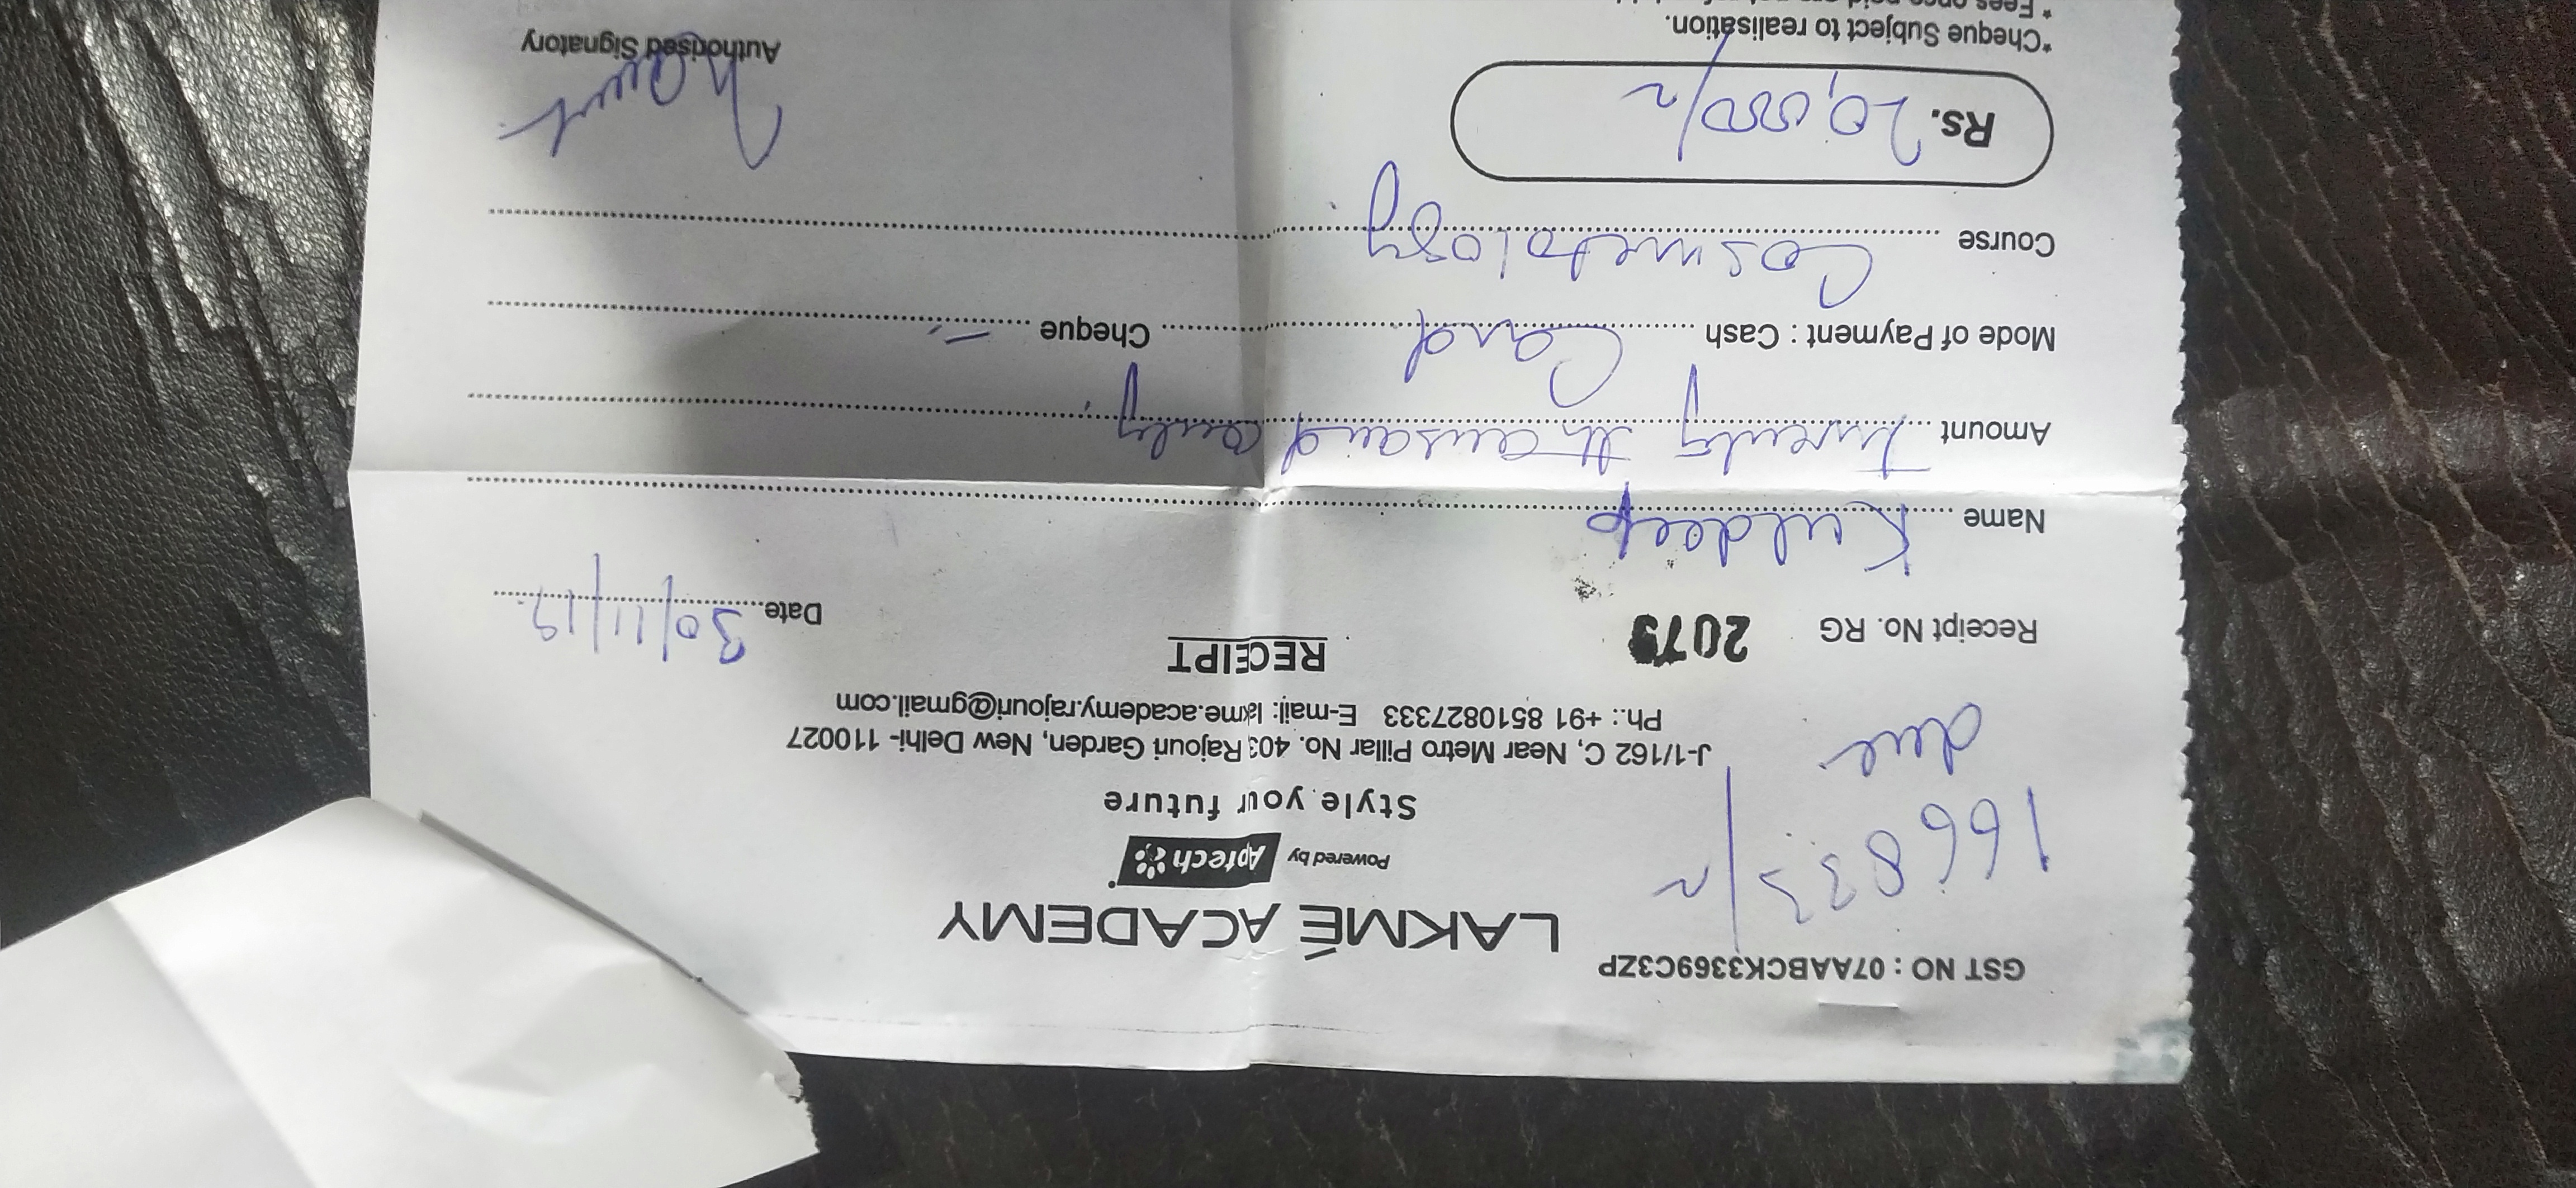 GST NO : 07AABCK3369C3ZP
LAKMÉ ACADEMY
Powered by Aptech
Style your future
166833/-
due
J-1/162 C, Near Metro Pillar No. 403 Rajouri Garden, New Delhi- 110027
Ph.: +91 8510827333 E-mail: lakme.academy.rajouri@gmail.com
RECEIPT
Receipt No. RG 2079 Date 30/11/19
Name Kuldeep
Amount Twenty thousand only
Mode of Payment : Cash Card Cheque =
Course Cosmetology
Rs. 20,000/-
Authorised Signatory
*Cheque Subject to realisation.
* Fees once paid